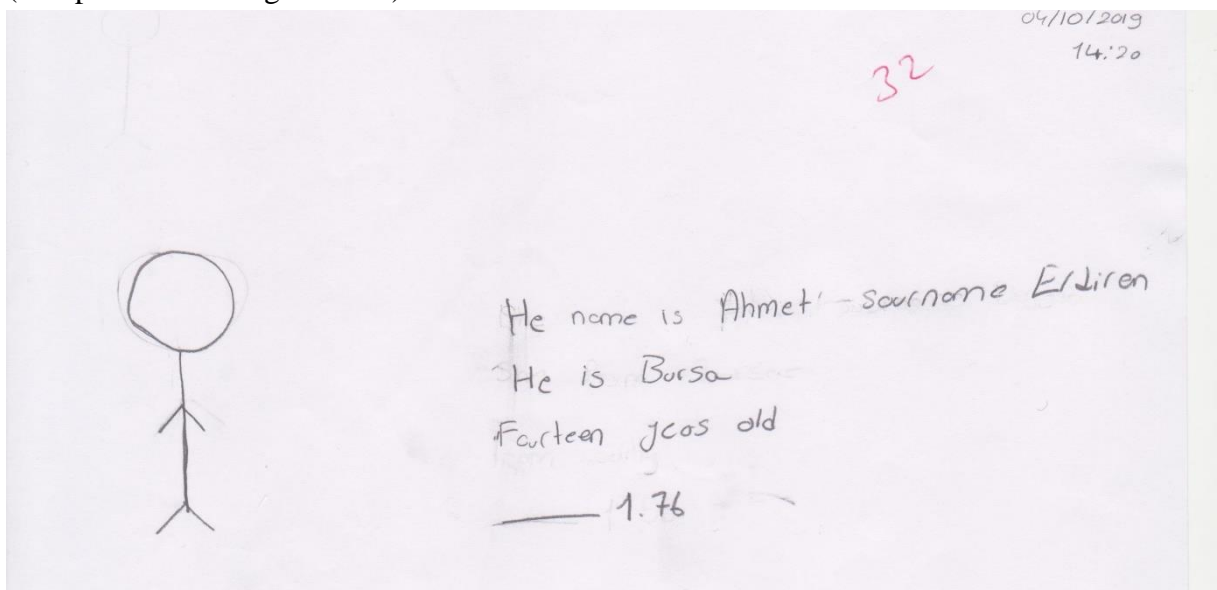 04/10/2019
14:20
32
He name is Ahmet - sourname Erdiren
He is Bursa
Fourteen jeos old
1.76